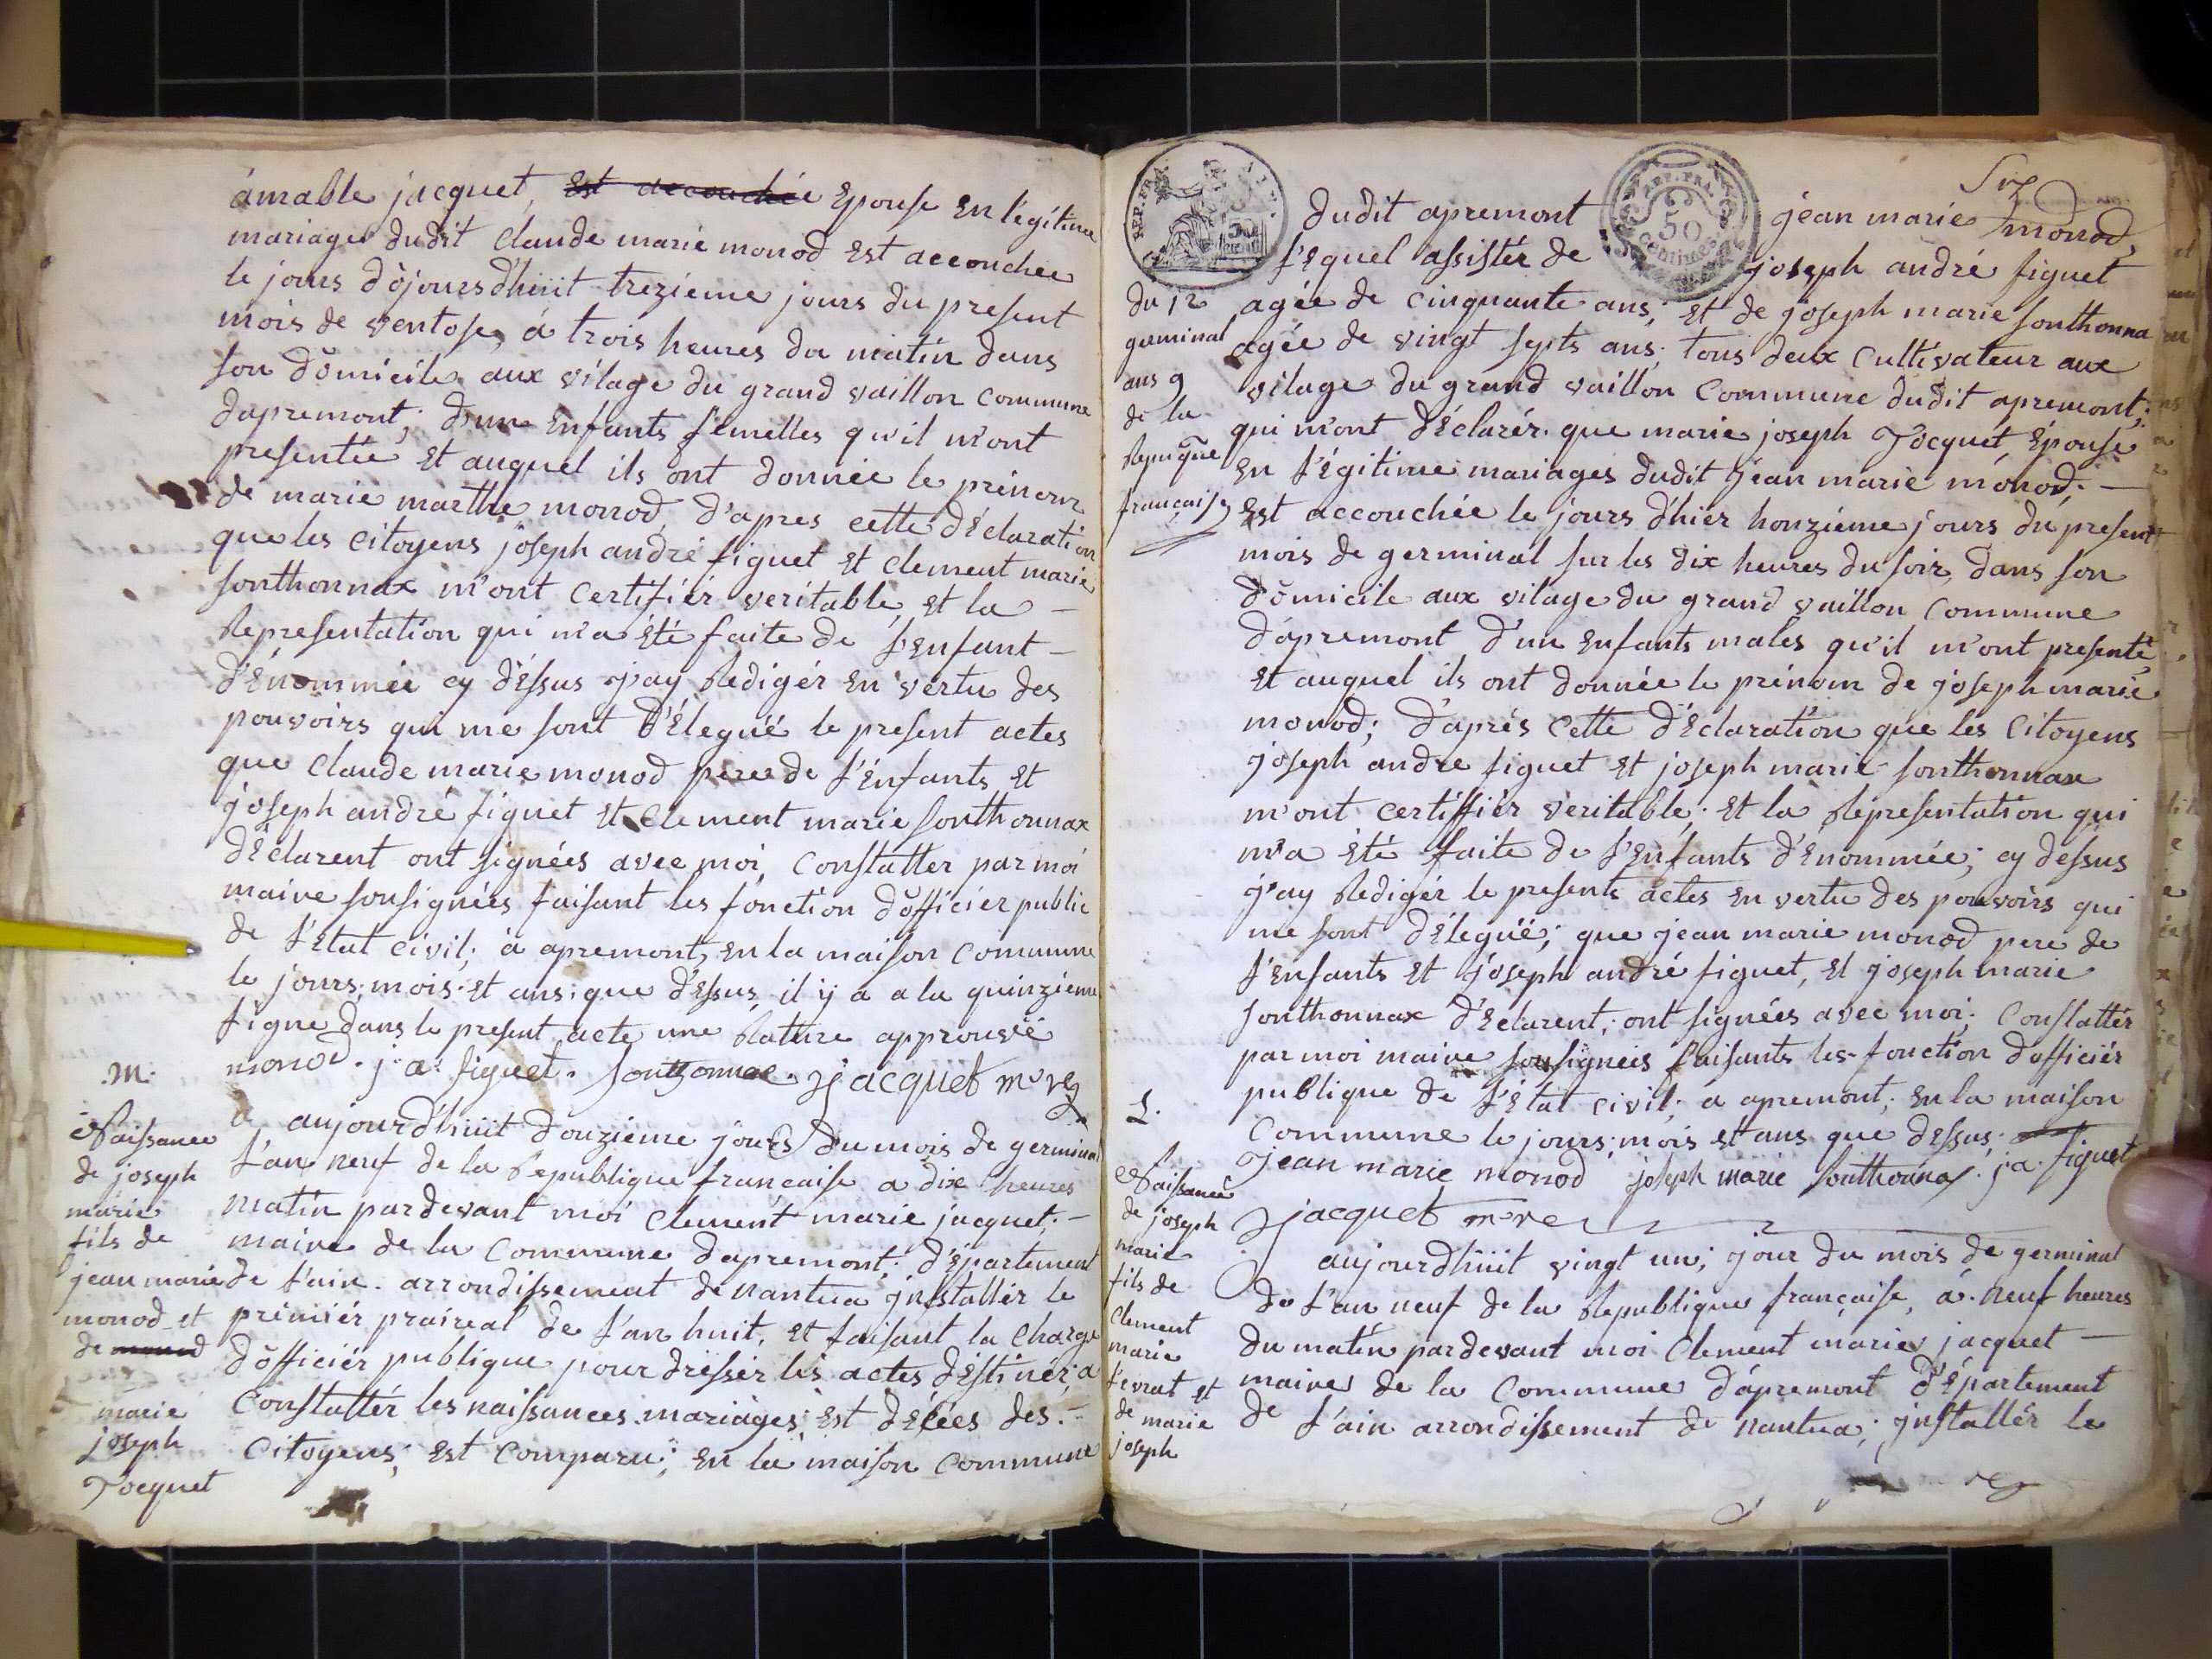 amable jacquet, Est accouchée Epouse En légitime
mariages dudit Claude marie monod Est accouchée
le jours d'ojoursdhuit trezieme jours du present
mois de ventose, á trois heures du matin dans
son domicile aux vilage du grand vaillon Commune
dapremont; d'une Enfants femelles qu'il m'ont
presentée Et auquel ils ont donnée le prénom
de marie marthe monod, d'apres cette déclaration
que les Citoyens joseph andré figuet Et Clement marie
sonthonnax m'ont Certifiér veritable, Et la
Representation qui m'a été faite de l'Enfant
d'énommée cy déssus j'ay Redigér En vertu des
pouvoirs qui me sont délegué le present actes
que Claude marie monod pere de l'Enfants Et
joseph andré figuet Et Clement marie sonthonnax
déclarent ont signées avec moi, Constatter par moi
maire sousignées faisant les fonction d'officier public
de l'Etat Civil; à apremont, En la maison Commune
le jours, mois Et ans que déssus, il y a a la quinzieme
ligne dans le present acte une Rature approuvée
monod. j. a. figuet. Sonthonnae. jacquet mre
.m.
Naissance
de joseph
marie
fils de
jean marie
monod et
de monod
marie
joseph
Tocquet
aujourd'huit douzieme jours du mois de germinal
l'an neuf de la Republique francaise a dix heures
matin pardevant moi Clement marie jacquet;
maire de la Commune dapremont; département
de l'ain. arrondissement de nantua jnstallér le
prémiér praireal de l'an huit, Et faisant la Charge
d'officiér publique pour dressér les actes déstinér; a
Constattér les naissances mariages; Est décées des
Citoyens; Est Comparu; En la maison Commune
REP. FRA.
REP. FRA.
50
Centimes
Six
dudit apremont jean marie monod
l'equel assistér de joseph andré figuet
du 12
germinal
ans 9
de la
Repuque
française
agée de Cinquante ans; Et de joseph marie sonthonna
agée de vingt septs ans; tous deux Cultivateur aux
vilage du grand vaillon Commune dudit apremont;
qui m'ont déclarér que marie joseph Tocquet, Épouse
En l'égitime mariages dudit jean marie monod;
Est accouchée le jours d'hier honzieme jours du present
mois de germinal sur les dix heures du soir, dans son
domicile aux vilage du grand vaillon Commune
dapremont d'un Enfants males qu'il m'ont presenté
Et auquel ils ont donnée le prénom de joseph marie
monod; d'aprés Cette déclaration que les Citoyens
joseph andre figuet Et joseph marie sonthonnax
m'ont certiffiér veritable; Et la Répresentation qui
m'a été faite de l'Enfants d'énommée; cy dessus
j'ay Redigér le presents actes En vertu des pouvoirs qui
me sont délegué; que jean marie monod pere de
l'Enfants Et joseph andré figuet, Et joseph marie
sonthonnax déclarent; ont signées avec moi; Constattér
par moi maire sousignées faisants les fonction d'officiér
publique de l'Etat Civil; a apremont; En la maison
Commune le jours; mois Et ans que dessus;
jean marie monod joseph marie Sonthonnax. j. a. figuet
jacquet mre
L.
Naissance
de joseph
marie
fils de
Clement
marie
levrat Et
de marie
joseph
aujourdhuit vingt un; jour du mois de germinal
de l'an neuf de la Republique française, á neuf heures
du matin pardevant moi Clement marie jacquet
maire de la Commune dapremont département
de l'ain arrondissement de nantua; jnstallér le